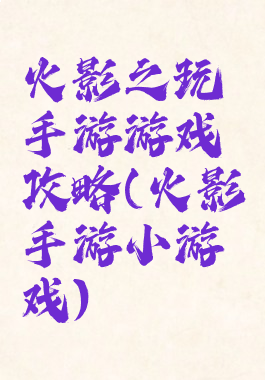 火影之玩
手游游戏
攻略(火影
手游小游
戏)